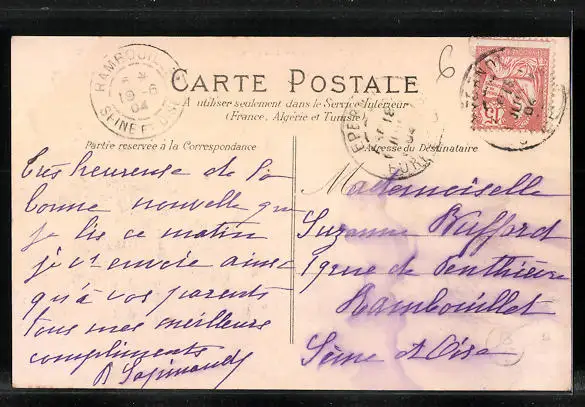 6
RAMBOUILLET
19 -6
04
SEINE ET OISE
CARTE POSTALE
A utiliser seulement dans le Service Intérieur
(France, Algérie et Tunisie)
Partie reservée à la Correspondance
Adresse du Destinataire
EURE
Très heureuse de la
bonne nouvelle que
je lis ce matin
je vs envoie ainsi
qu'à vos parents
tous mes meilleurs
compliments
Mademoiselle
Suzanne
rue de Penthièvre
Rambouillet
Seine et Oise